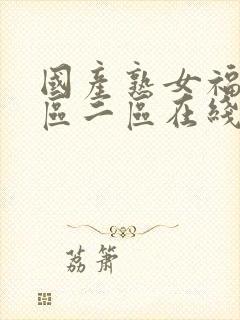 國產熟女福
區二區在綫
荔簫